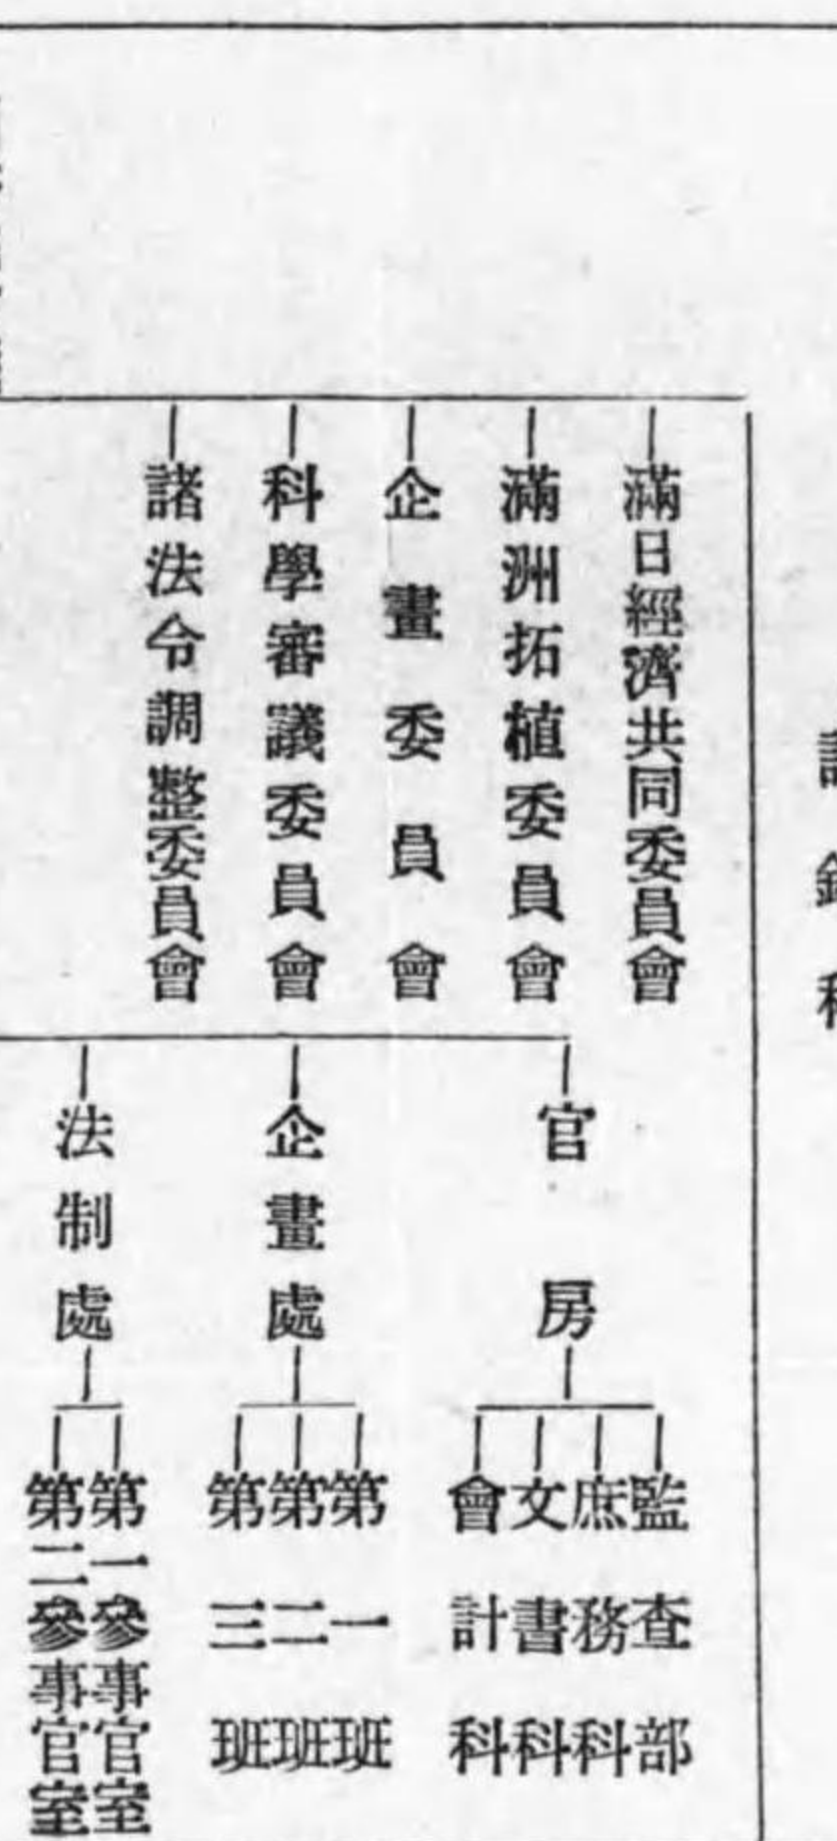 滿日經濟共同委員會
滿洲拓植委員會
企畫委員會
科學審議委員會
諸法令調整委員會
官房
監查部
庶務科
文書科
會計科
企畫處
第一班
第二班
第三班
法制處
第一參事官室
第二參事官室